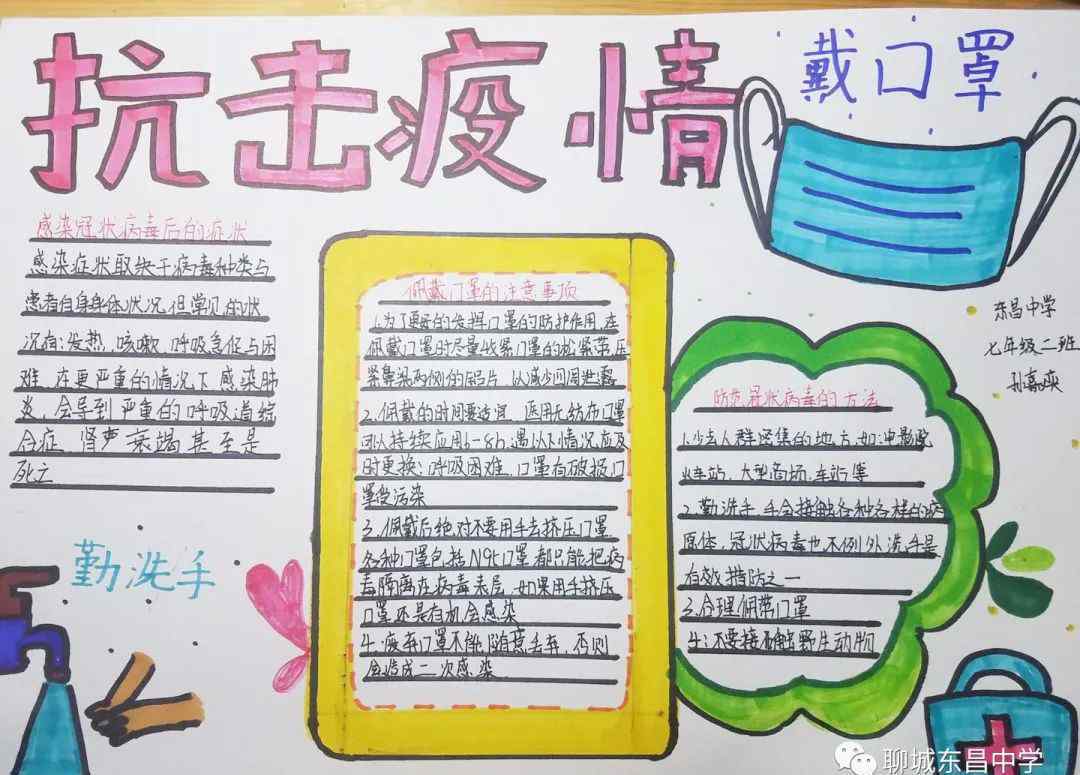 抗击疫情
戴口罩
感染冠状病毒后的症状
感染症状取决于病毒种类与
患者自身身体状况但常见的状
况有:发热,咳嗽,呼吸急促与困
难,在更严重的情况下感染肺
炎,会导到严重的呼吸道综
合症,肾衰竭甚至是
死亡
佩戴口罩的注意事项
1.为了更好的发挥口罩的防护作用,在
佩戴口罩时尽量线紧口罩的松紧带压
紧鼻梁两侧的铝片,以减少四周泄露
2.佩戴的时间要适宜,医用无纺布口罩
可以持续应用6-8h,遇以下情况应及
时更换:呼吸困难,口罩有破损口
罩受污染
3.佩戴后绝对不要用手去挤压口罩
各种口罩包括N95口罩都只能把病
毒隔离在病毒表层,如果用手挤压
口罩还是有机会感染
4:废弃口罩不能随意丢弃,否则
会造成二次感染
东昌中学
七年级二班
孙嘉
防范冠状病毒的方法
1.少去人群密集的地方,如:电影院
火车站,大型商场,车站等
2.勤洗手,手会接触各种各样的病
原体,冠状病毒也不例外洗手是
有效措防之一
3.合理佩带口罩
4:不要接触野生动物
勤洗手
聊城东昌中学